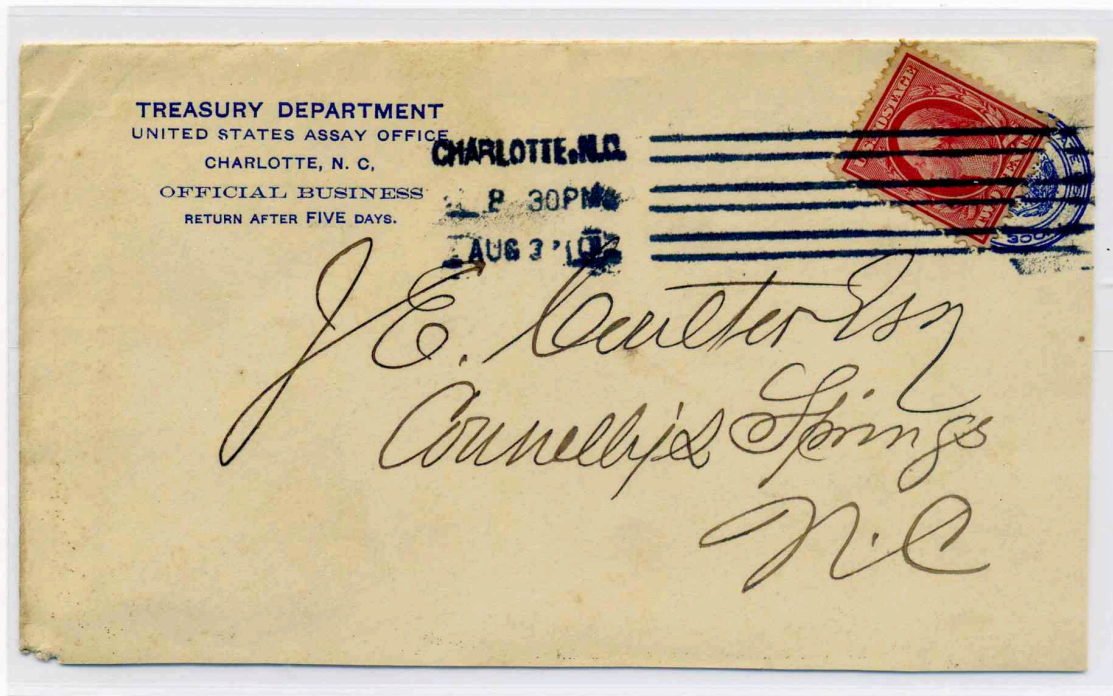 TREASURY DEPARTMENT
UNITED STATES ASSAY OFFICE
CHARLOTTE, N. C,
OFFICIAL BUSINESS
RETURN AFTER FIVE DAYS.
CHARLOTTE, N.C.
8 30PM
AUG 3 '10
U.S. POSTAGE
J E. Coulter Esq
Connelly's Springs
N.C